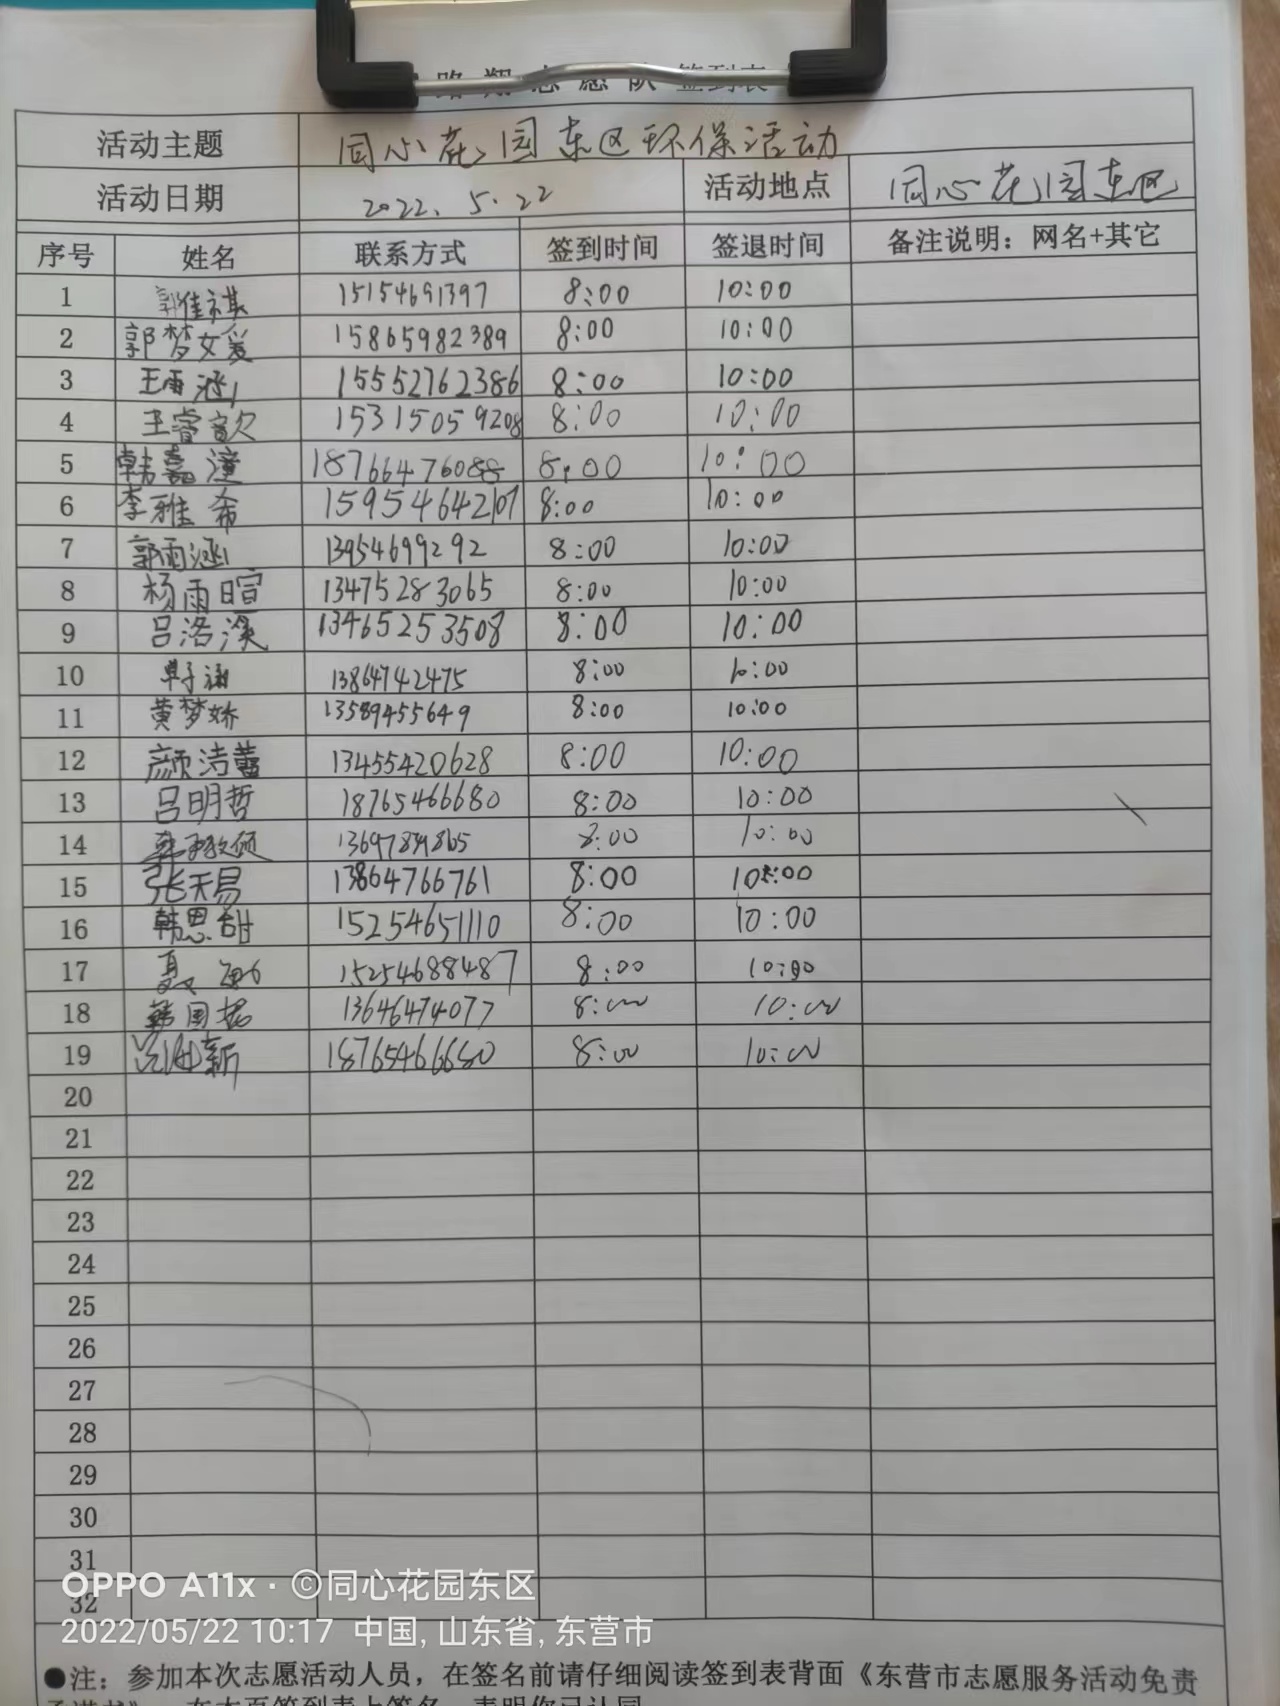 志愿队 签到表
活动主题 同心花园东区环保活动
活动日期 2022.5.22 活动地点 同心花园东区
序号 姓名 联系方式 签到时间 签退时间 备注说明：网名+其它
1 郭佳祺 15154691397 8:00 10:00
2 郭梦媛 15865982389 8:00 10:00
3 王雨涵 15552762386 8:00 10:00
4 王睿歆 15315059208 8:00 10:00
5 韩嘉潼 18766476088 8:00 10:00
6 李雅希 15954642107 8:00 10:00
7 郭雨涵 13954699292 8:00 10:00
8 杨雨暄 13475283065 8:00 10:00
9 吕洛溪 13465253508 8:00 10:00
10 13864742475 8:00 10:00
11 黄梦娇 13589455649 8:00 10:00
12 颜洁蕾 13455420628 8:00 10:00
13 吕明哲 18765466680 8:00 10:00
14 8:00 10:00
15 张天易 13864766761 8:00 10:00
16 韩恩甜 15254651110 8:00 10:00
17 15254688487 8:00 10:00
18 13646474077 8:00 10:00
19 18765466680 8:00 10:00
20
21
22
23
24
25
26
27
28
29
30
31
32
OPPO A11x · ©同心花园东区
2022/05/22 10:17 中国, 山东省, 东营市
●注：参加本次志愿活动人员，在签名前请仔细阅读签到表背面《东营市志愿服务活动免责